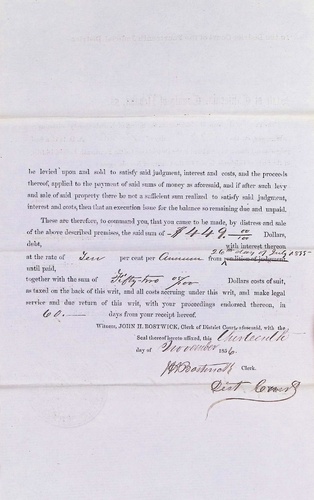 be levied upon and sold to satisfy said judgment, interest and costs, and the proceeds
thereof, applied to the payment of said sums of money as aforesaid, and if after such levy
and sale of said property there be not a sufficient sum realized to satisfy said judgment,
interest and costs, then that an execution issue for the balance so remaining due and unpaid.
These are therefore, to command you, that you cause to be made, by distress and sale
of the above described premises, the said sum of $449 00/100 Dollars,
debt, with interest thereon
26th day of July 1855
at the rate of Ten per cent per Annum from rendition of judgment
until paid,
together with the sum of Fifty-two 00/100 Dollars costs of suit,
as taxed on the back of this writ, and all costs accruing under this writ, and make legal
service and due return of this writ, with your proceedings endorsed thereon, in
60 days from your receipt hereof.
Witness, JOHN H. BOSTWICK, Clerk of District Court, aforesaid, with the
Seal thereof hereto affixed, this Thirteenth
day of November 1856.
JH Bostwick Clerk.
Dist Court